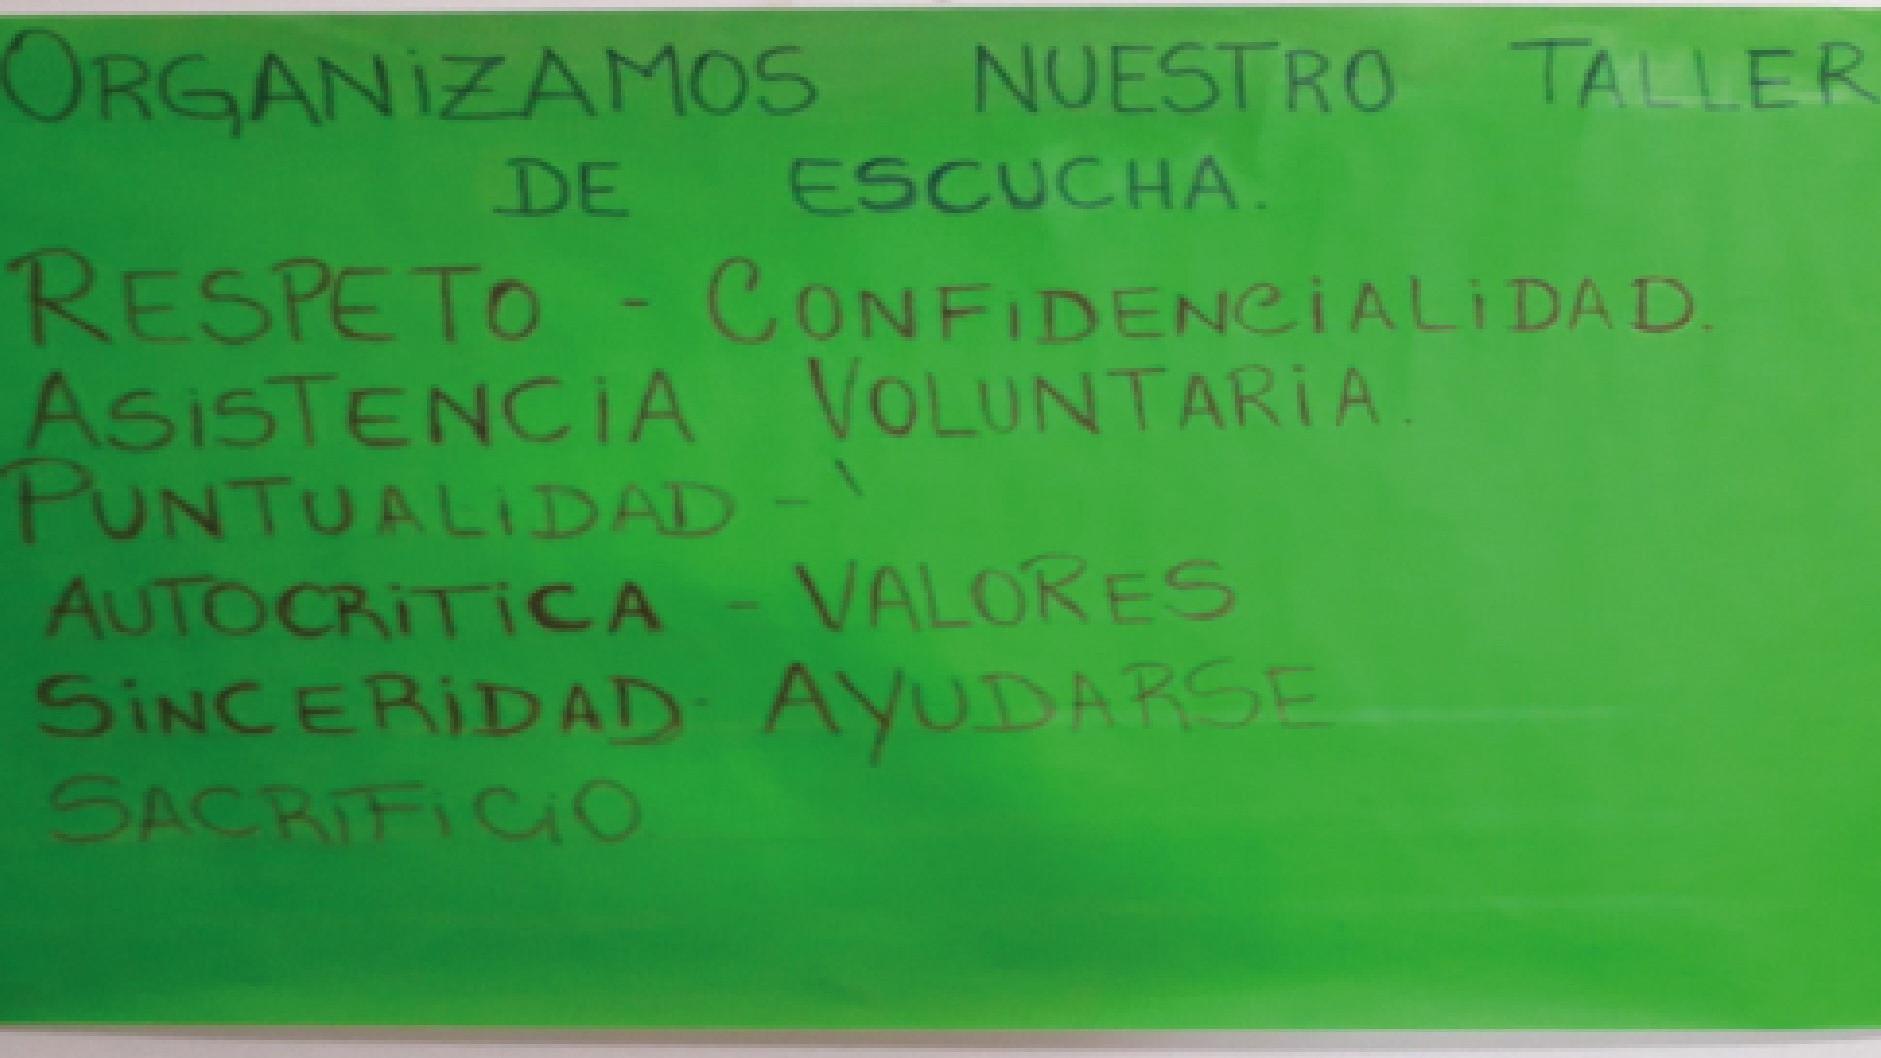 ORGANiZAMOS NUESTRO TALLER
DE ESCUCHA.
RESPETO - CONFiDENCiALiDAD.
ASiSTENCiA VOLUNTARiA.
PUNTUALiDAD -
AUTOCRiTiCA - VALORES
SiNCERiDAD - AYUDARSE
SACRiFiCiO